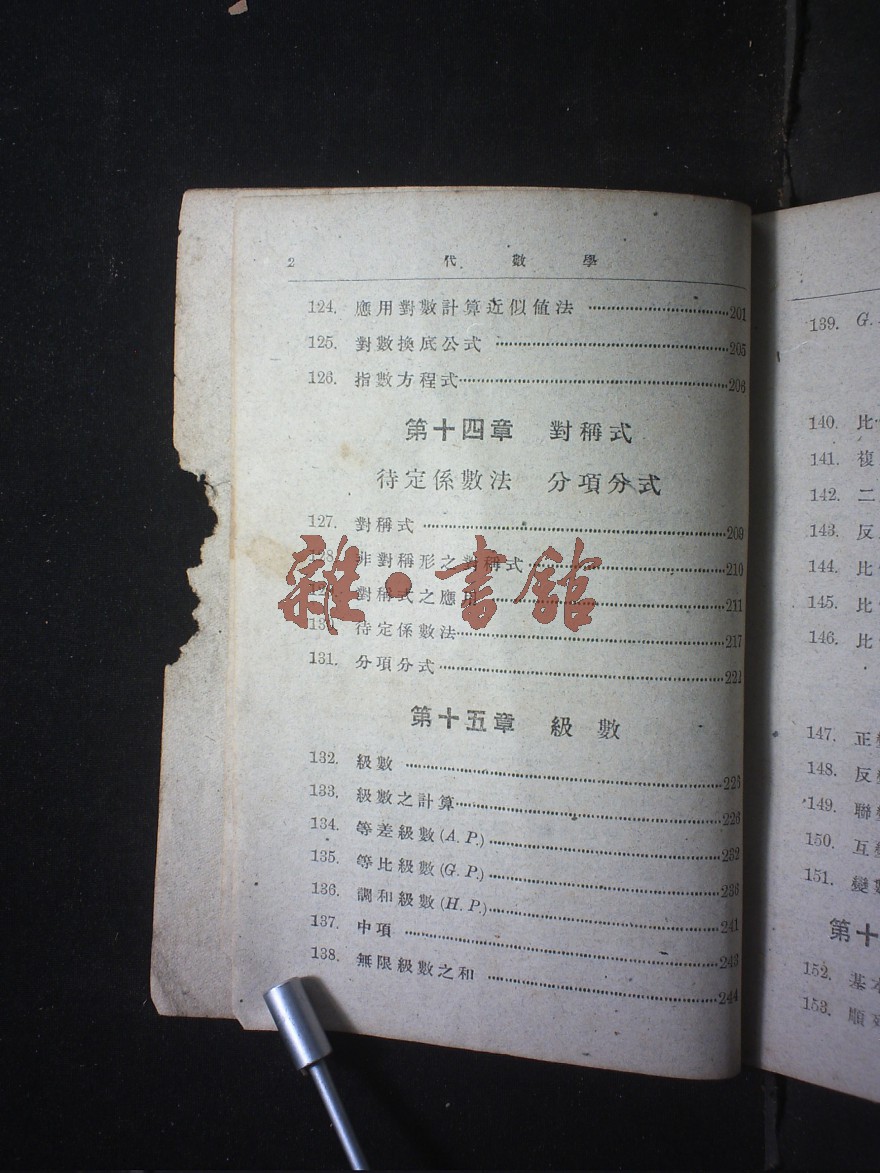 2 代數學
124. 應用對數計算近似值法 ……201
125. 對數換底公式 ……205
126. 指數方程式……206
第十四章 對稱式
待定係數法 分項分式
127. 對稱式 ……209
128. 非對稱形之對稱式……210
129. 對稱式之應用……211
130. 待定係數法……217
131. 分項分式……221
第十五章 級數
132. 級數 ……223
133. 級數之計算……226
134. 等差級數(A. P.)……232
135. 等比級數(G. P.)……236
136. 調和級數(H. P.)……241
137. 中項 ……243
138. 無限級數之和 ……244
雜·書館
139. G.
140. 比
141. 複
142. 二
143. 反
144. 比
145. 比
146. 比
147. 正
148. 反
149. 聯
150. 互
151. 變
第十
152. 基本
153. 順